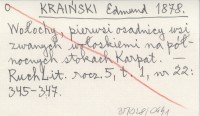 O KRAIŃSKI Edmund 1878.
Wołochy, pierwsi osadnicy wsi
zwanych wołoskiemi na pół-
nocnych stokach Karpat. —
Ruch Lit. rocz. 5, t. 1, nr 22:
345-347.